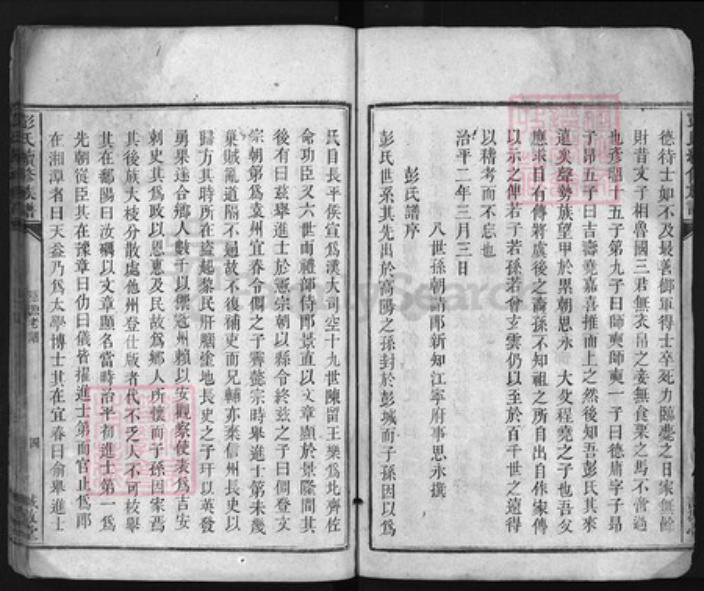 德待士如不及最善御軍得士卒死力臨薨之日家無餘
財昔文子相魯國三君無衣帛之妾無食粟之馬不啻過
也彥昭十五子第九子曰師奭師奭一子曰德庸字子昂
子昂五子曰吉壽堯嘉喜推而上之然後知吾彭氏其來
遠矣聲勢族望甲於累朝思永大父程堯之子也吾父
應求目有傳將虞後之裔孫不知祖之所自出自作家傳
以示之俾若子若孫若曾玄雲仍以至於百千世之遠得
以稽考而不忘也
治平二年三月三日
八世孫朝請郎新知江寧府事思永撰
彭氏譜序
彭氏世系其先出於高陽之孫封於彭城而子孫因以為
氏目長平侯宣為漢大司空十九世陳留王樂為北齊佐
命功臣又六世而禮部侍郎景直以文章顯於景隆間其
後有曰茲舉進士於憲宗朝以縣令終茲之子曰倜登文
宗朝第為袁州宜春令倜之子霽懿宗時舉進士第未幾
巢賊亂道隔不通故不復補吏而兄輔亦棄信州長史以
歸方其時所在盜起黎民肝腦塗地長史之子玕以英發
勇果達合鄉人數千以禦寇州賴以安觀察使表為吉安
刺史其為政以恩惠及民故為鄉人所懷而子孫因家焉
其後族大枝分散處他州登仕版者代不乏人不可枚舉
其在鄱陽曰汝礪以文章顯名當時治平初進士第一為
先朝從臣其在豫章曰仂曰儀皆擢進士第而官止為郎
在湘潭者曰天益乃為太學博士其在宜春曰俞舉進士
彭氏續修族譜
四